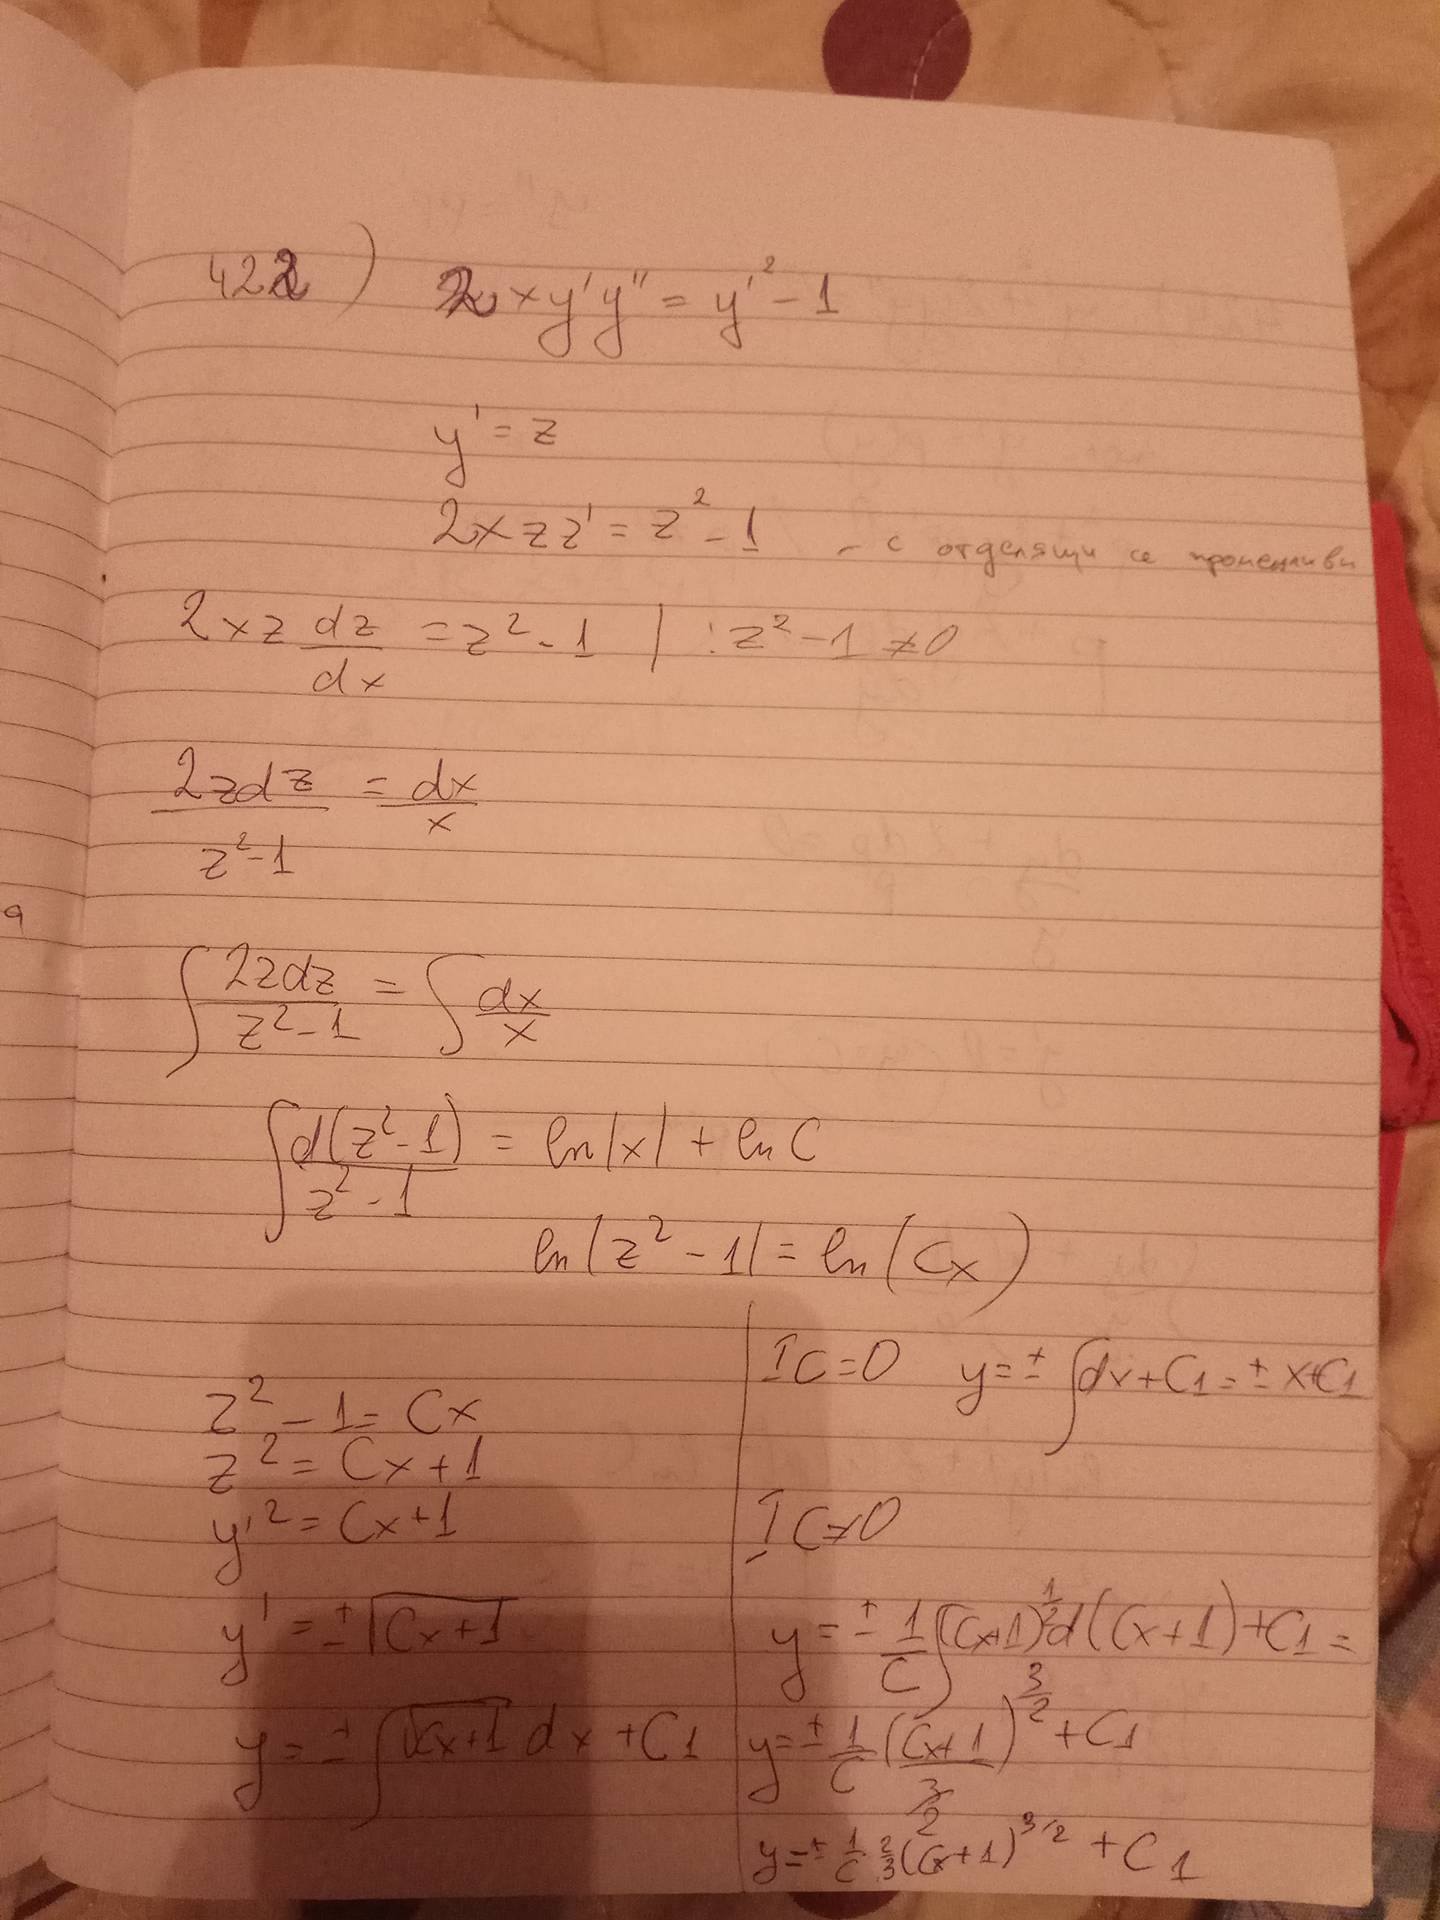 422) 2xy'y'' = y'² - 1
y' = z
2xzz' = z² - 1 - с отделящи се променливи
2xz dz/dx = z² - 1 | : z² - 1 ≠ 0
2zdz/z²-1 = dx/x
∫ 2zdz/z²-1 = ∫ dx/x
∫ d(z²-1)/z²-1 = ln|x| + ln C
ln|z² - 1| = ln(Cx)
z² - 1 = Cx
z² = Cx + 1
y'² = Cx + 1
y' = ± √Cx+1
y = ± ∫ √Cx+1 dx + C1
I C = 0 y = ± ∫dx + C1 = ± x + C1
I C ≠ 0
y = ± 1/C ∫(Cx+1)^1/2 d(Cx+1) + C1 =
y = ± 1/C (Cx+1)^3/2 / 3/2 + C1
y = ± 1/C 2/3 (Cx+1)^3/2 + C1